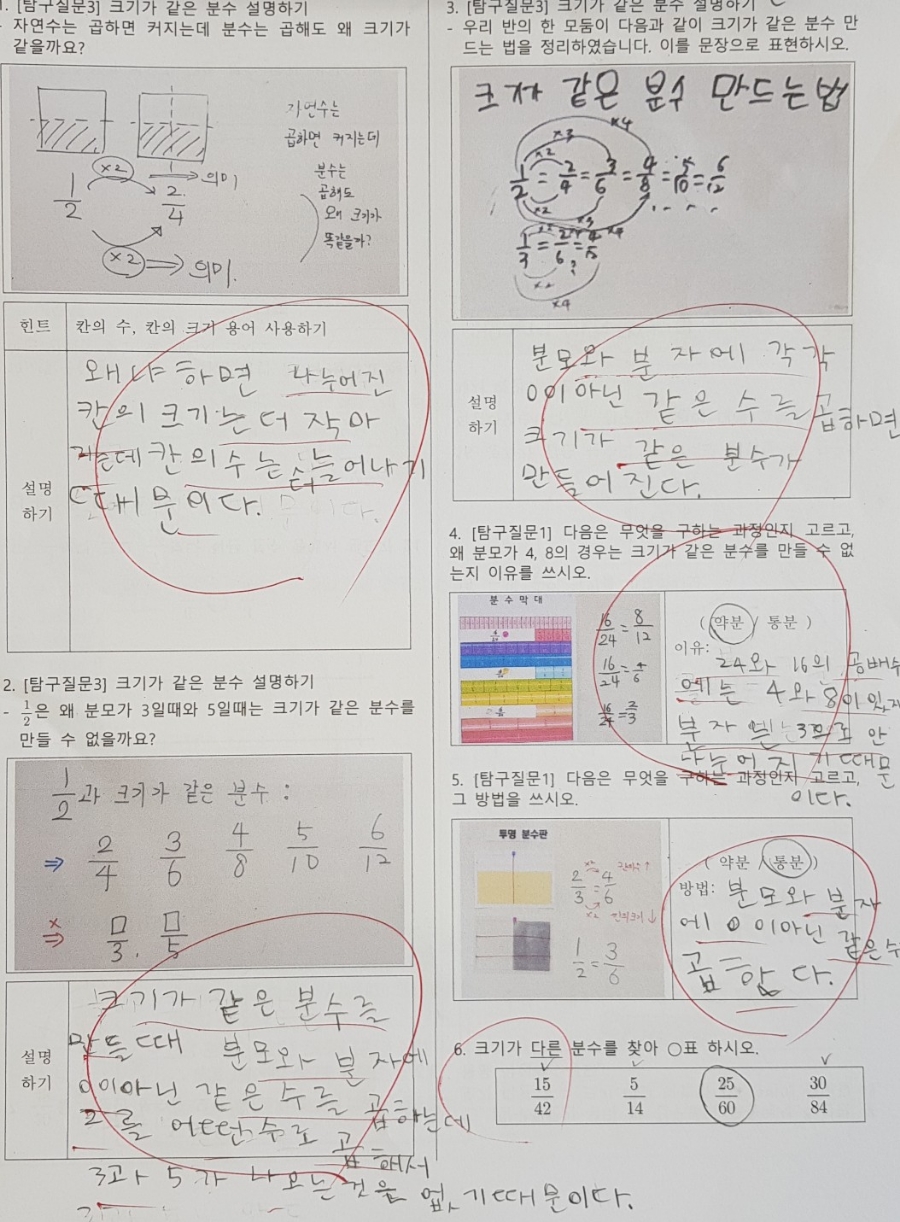 1. [탐구질문3] 크기가 같은 분수 설명하기
- 자연수는 곱하면 커지는데 분수는 곱해도 왜 크기가
같을까요?
자연수는
곱하면 커지는데
분수는
곱해도
왜 크기가
똑같을까?
×2 의미
1/2 2/4
×2 의미.
힌트 칸의 수, 칸의 크기 용어 사용하기
설명
하기
왜냐하면 나누어진
칸의 크기는 더 작아
지는데 칸의 수는 더 늘어나기
때문이다.
2. [탐구질문3] 크기가 같은 분수 설명하기
- 1/2은 왜 분모가 3일때와 5일때는 크기가 같은 분수를
만들 수 없을까요?
1/2과 크기가 같은 분수 :
⇒ 2/4 3/6 4/8 5/10 6/12
×⇒ □/3, □/5
설명
하기
크기가 같은 분수를
만들때 분모와 분자에
0이아닌 같은 수를 곱하는데
2를 어떤수로 곱해서
3과 5가 나오는것은 없기때문이다.
3. [탐구질문3] 크기가 같은 분수 설명하기
- 우리 반의 한 모둠이 다음과 같이 크기가 같은 분수 만
드는 법을 정리하였습니다. 이를 문장으로 표현하시오.
크기가 같은 분수 만드는법
×4
×3
×2
1/2 = 2/4 = 3/6 = 4/8 = 5/10 = 6/12
×2 ×3 ×4
1/3 = 2/6
×4
설명
하기
분모와 분자에 각각
0이아닌 같은 수를 곱하면
크기가 같은 분수가
만들어진다.
4. [탐구질문1] 다음은 무엇을 구하는 과정인지 고르고,
왜 분모가 4, 8의 경우는 크기가 같은 분수를 만들 수 없
는지 이유를 쓰시오.
분 수 막 대
16/24 = 8/12
16/24 = 4/6
16/24 = 2/3
( 약분 / 통분 )
이유:
24와 16의 공배수
에는 4와 8이 있지
분자는 3으로 안
나누어지기때문
이다.
5. [탐구질문1] 다음은 무엇을 구하는 과정인지 고르고,
그 방법을 쓰시오.
투명 분수판
×2 칸의수↑
2/3 = 4/6
×2 칸의크기↓
1/2 = 3/6
( 약분 / 통분 )
방법: 분모와 분자
에 0이아닌 같은수
곱합다.
6. 크기가 다른 분수를 찾아 ○표 하시오.
15/42 5/14 25/60 30/84